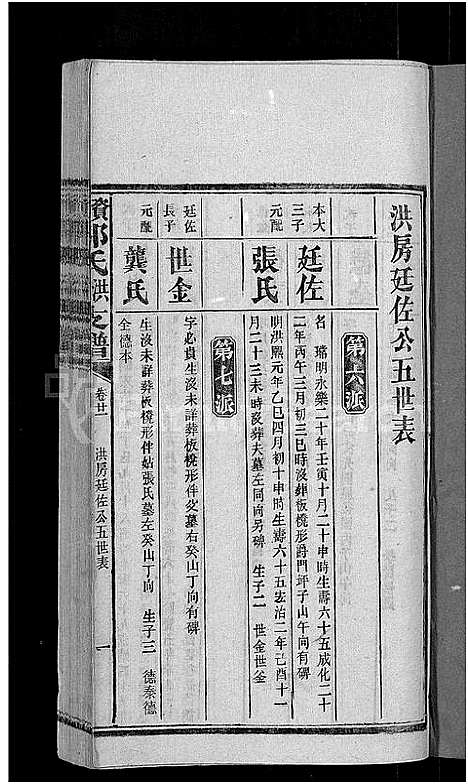 洪房廷佐公五世表
第六派
本大三子
廷佐
名璿明永樂二十年壬寅十月二十申時生壽六十五成化二十
二年丙午三月初三巳時沒葬板櫈形爵門坪子山午向有碑
元配
張氏
明洪熙元年乙巳四月初十申時生壽六十五宏治二年己酉十一
月二十三未時沒葬夫墓左同向另碑 生子二 世金世釜
第七派
廷佐長子
世金
字必貴生沒未詳葬板櫈形伴父墓右癸山丁向有碑
元配
龔氏
生沒未詳葬板櫈形伴姑張氏墓左癸山丁向 生子三 德泰德
全德本
資邵氏洪支譜
卷廿一
洪房廷佐公五世表
一